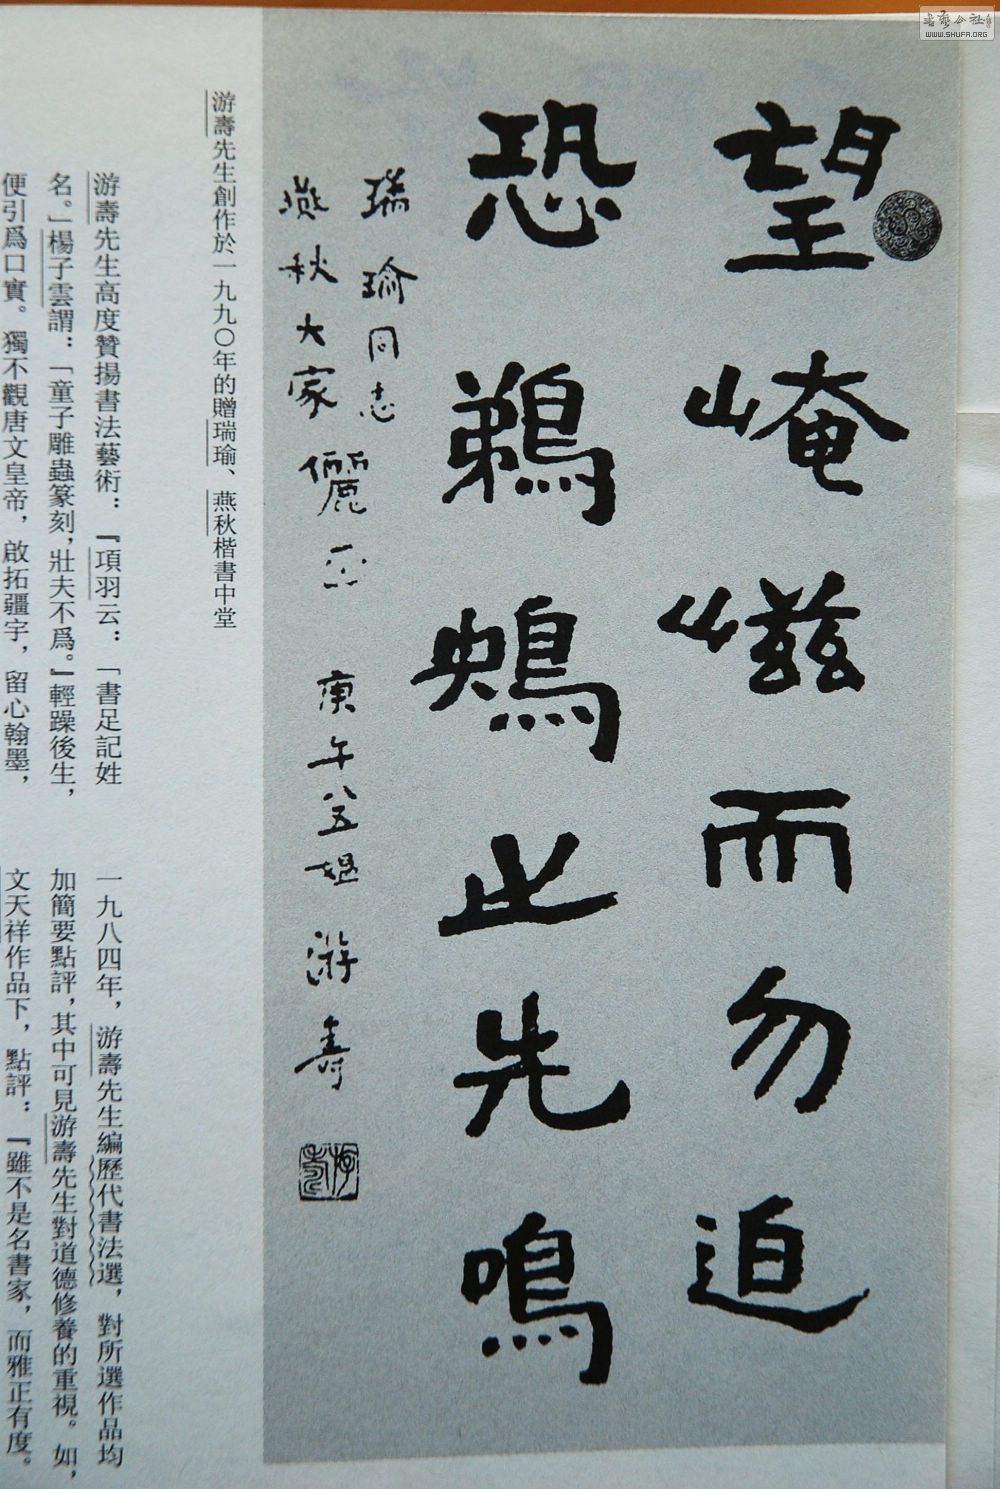 書藝公社
WWW.SHUFA.ORG
望崦嵫而勿迫
恐鵜鴂之先鳴
瑞瑜同志
燕秋大家儷正 庚午八五媪 游壽
游壽
游壽先生創作於一九九〇年的贈瑞瑜、燕秋楷書中堂
游壽先生高度贊揚書法藝術：『項羽云：「書足記姓
名。」楊子雲謂：「童子雕蟲篆刻，壯夫不爲。』輕躁後生，
便引爲口實。獨不觀唐文皇帝，啟拓疆宇，留心翰墨，
一九八四年，游壽先生編歷代書法選，對所選作品均
加簡要點評，其中可見游壽先生對道德修養的重視。如，
文天祥作品下，點評：『雖不是名書家，而雅正有度。